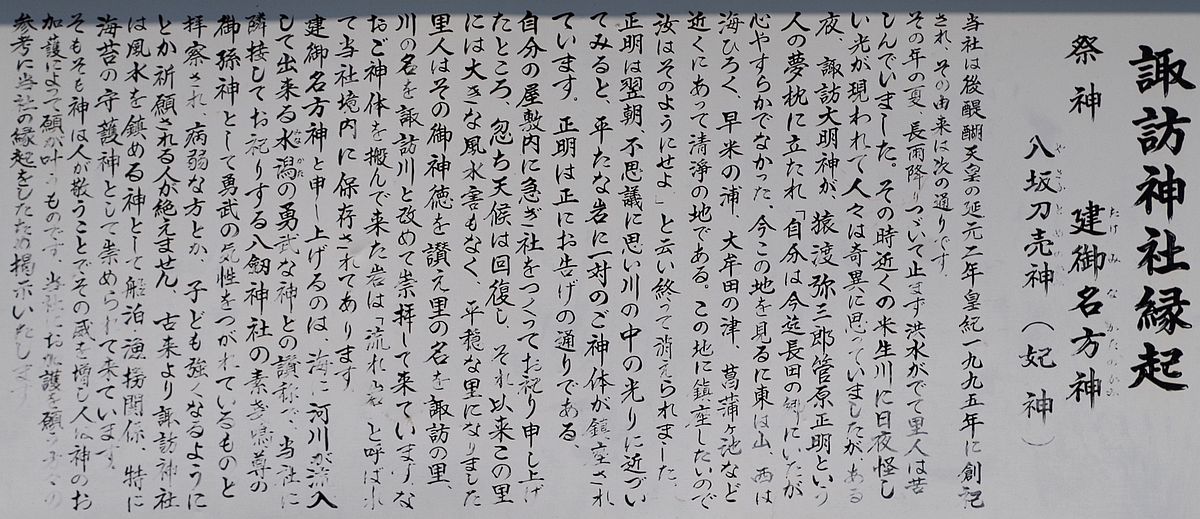 諏訪神社縁起
祭神 建御名方神
たけみなかたのかみ
八坂刀売神(妃神)
やさかとめの
当社は後醍醐天皇の延元二年皇紀一九九五年に創祀
され、その由来は次の通りです。
その年の夏、長雨降りつづいて止まず洪水がでて里人は苦
しんでいました。その時近くの米生川に日夜怪し
い光が現われて人々は奇異に思っていましたがある
夜、諏訪大明神が、猿渡弥三郎管原正明という
人の夢枕に立たれ「自分は今迄長田の郷にいたが
心やすらかでなかった、今この地を見るに東は山、西は
海ひろく、早米の浦、大牟田の津、菖蒲ヶ池など
近くにあって清浄の地である。この地に鎮座したいので
汝はそのようにせよ」と云い終って消えられました。
正明は翌朝、不思議に思い川の中の光りに近づい
てみると、平たな岩に一対のご神体が鎮座され
ています。正明は正にお告げの通りである、
自分の屋敷内に急ぎ社をつくってお祀り申し上げ
たところ、忽ち天候は回復し、それ以来この里
には大きな風水害もなく、平穏な里になりました
里人はその御神徳を讃え里の名を諏訪の里、
川の名を諏訪川と改めて崇拝して来ています。な
おご神体を搬んで来た岩は「流れ岩」と呼ばれ
て当社境内に保存されてあります。
建御名方神と申し上げるのは、海に河川が流入
して出来る水潟の勇武な神との讃称で、当社に
みなかた
隣接してお祀りする八剱神社の素戔嗚尊の
御孫神として勇武の気性をつがれているものと
拝察され、病弱な方とか、子ども強くなるように
とか祈願される人が絶えません、古来より諏訪神社
は風水を鎮める神として船泊、漁撈関係、特に
海苔の守護神として崇められて来ています。
そもそも神は人が敬うことでその威を増し人は神のお
加護によって願が叶うものです。当社にお加護を願う方々の
参考に当社の縁起をしたため掲示いたします